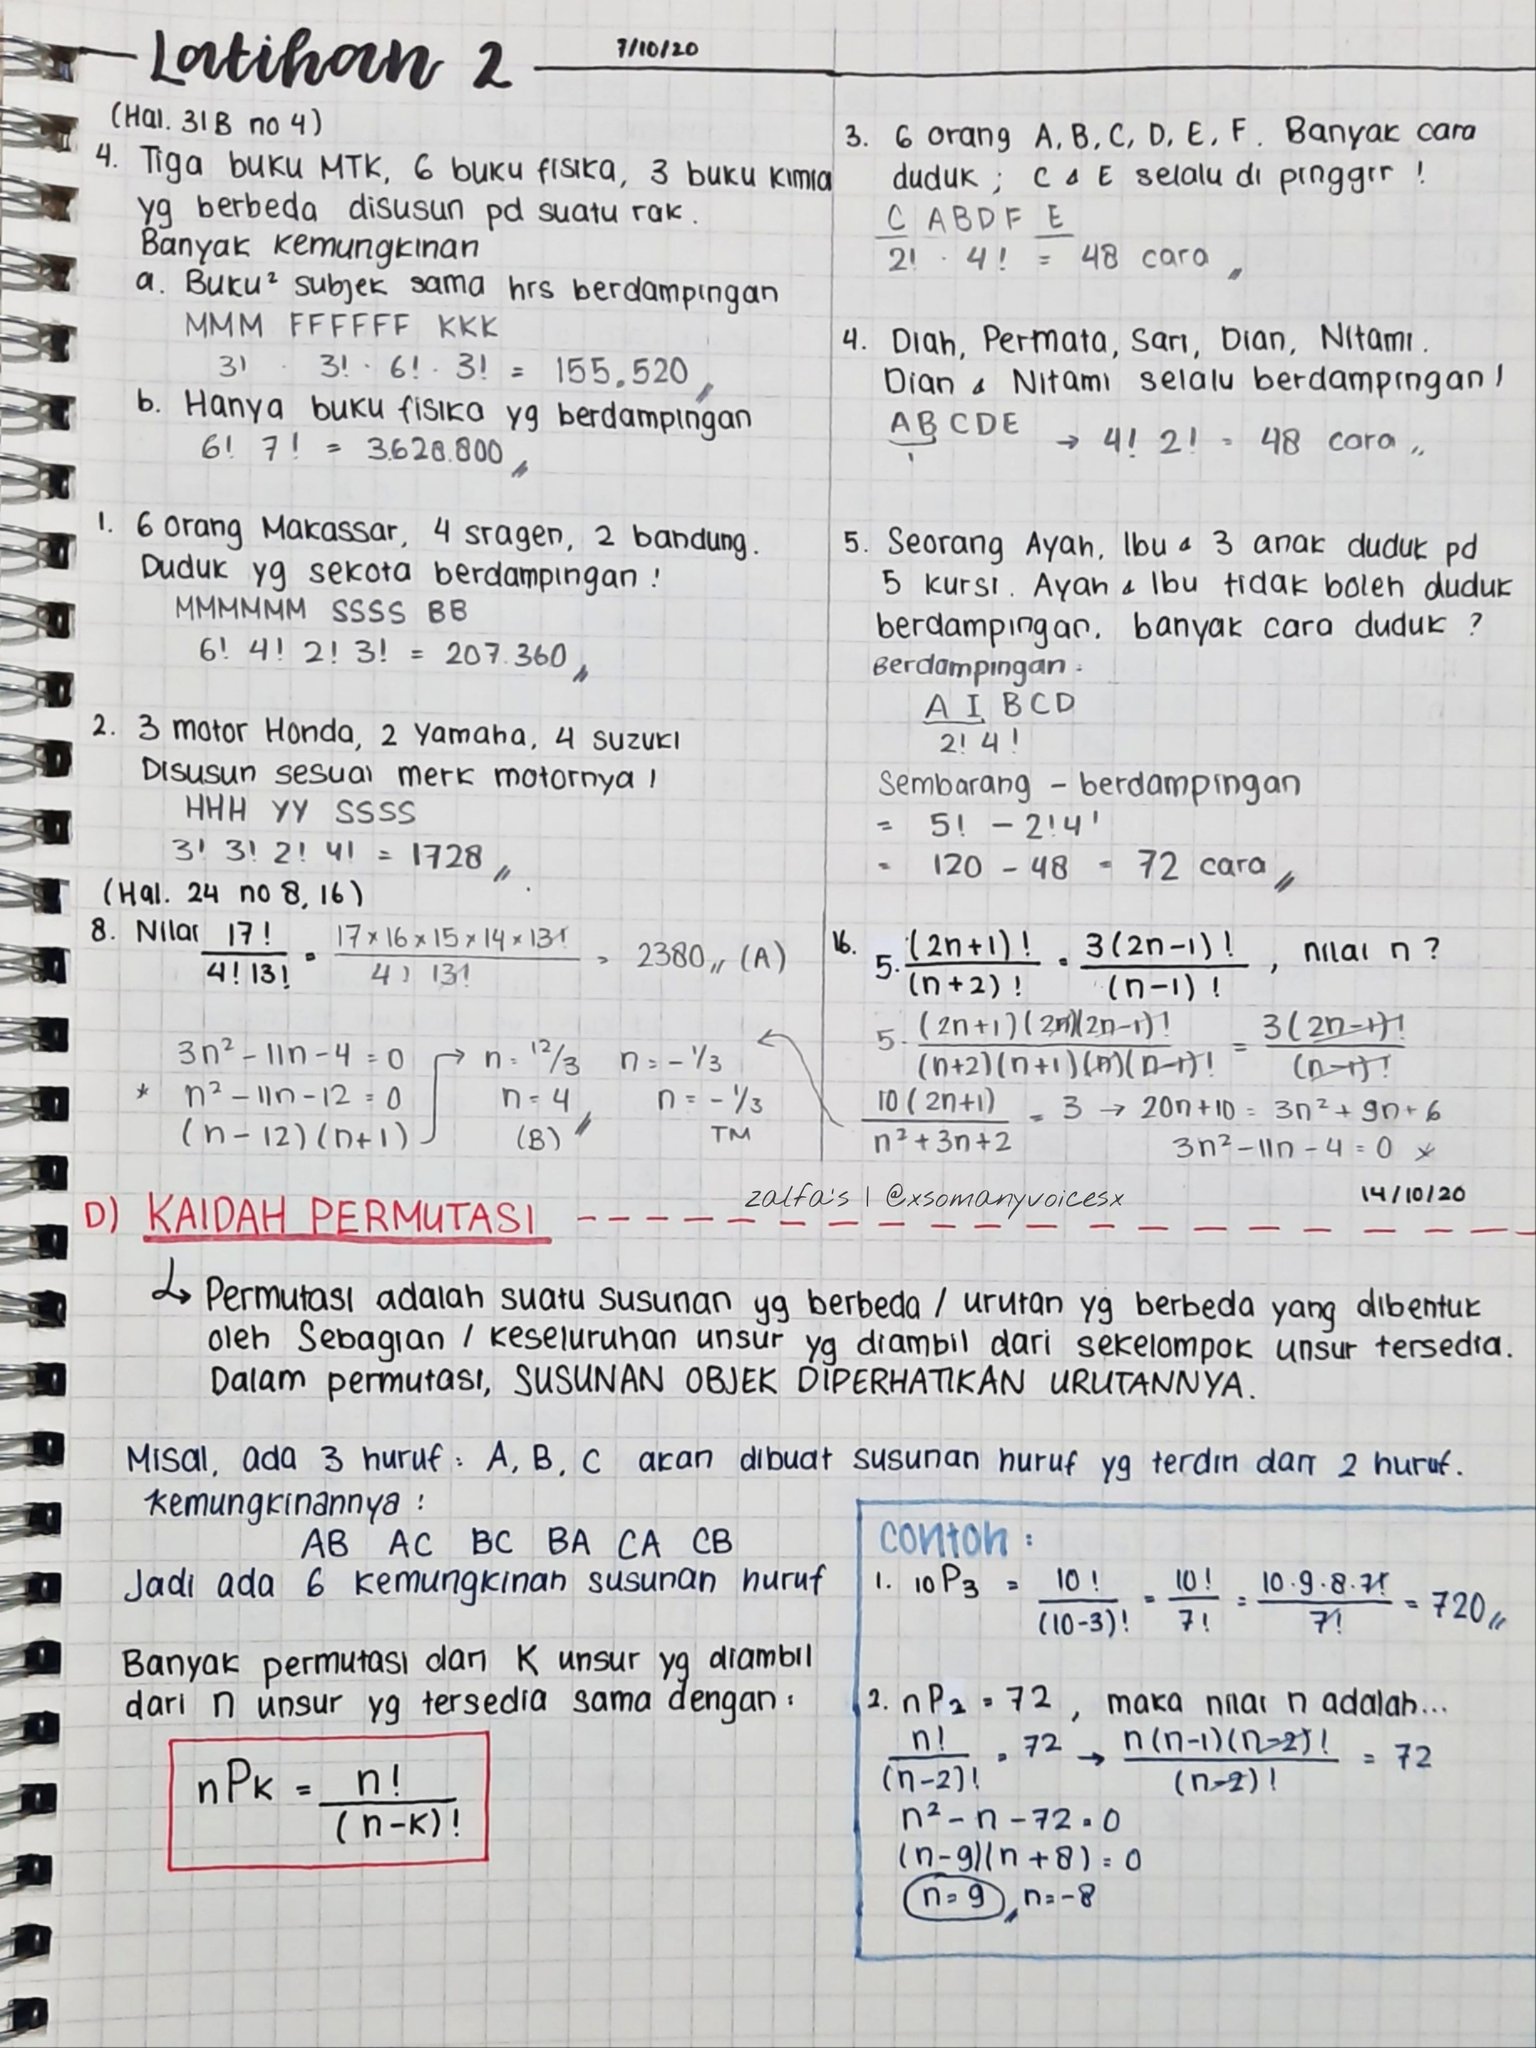 Latihan 2
7/10/20
(Hal. 31B no 4)
4. Tiga buku MTK, 6 buku fisika, 3 buku kimia
yg berbeda disusun pd suatu rak.
Banyak kemungkinan
a. Buku² subjek sama hrs berdampingan
MMM FFFFFF KKK
3! · 3! · 6! · 3! = 155.520
b. Hanya buku fisika yg berdampingan
6! 7! = 3.628.800
1. 6 orang Makassar, 4 sragen, 2 bandung.
Duduk yg sekota berdampingan!
MMMMMM SSSS BB
6! 4! 2! 3! = 207.360
2. 3 motor Honda, 2 Yamaha, 4 suzuki
Disusun sesuai merk motornya!
HHH YY SSSS
3! 3! 2! 4! = 1728
(Hal. 24 no 8, 16)
8. Nilai 17!/4!13! = 17×16×15×14×13!/4! 13! = 2380 (A)
3n² - 11n - 4 = 0 → n = 12/3 n = -1/3
* n² - 11n - 12 = 0 n = 4 n = -1/3
(n - 12)(n+1) (B) TM
3. 6 orang A, B, C, D, E, F. Banyak cara
duduk; C & E selalu di pinggir!
C ABDF E
2! · 4! = 48 cara
4. Diah, Permata, Sari, Dian, Nitami.
Dian & Nitami selalu berdampingan!
ABCDE → 4! 2! = 48 cara
1
5. Seorang Ayah, Ibu & 3 anak duduk pd
5 kursi. Ayah & Ibu tidak boleh duduk
berdampingan. banyak cara duduk?
Berdampingan:
A I BCD
2! 4!
Sembarang - berdampingan
= 5! - 2!4!
= 120 - 48 = 72 cara
16. 5. (2n+1)!/(n+2)! = 3(2n-1)!/(n-1)!, nilai n?
5. (2n+1)(2n)(2n-1)!/(n+2)(n+1)(n)(n-1)! = 3(2n-1)!/(n-1)!
10(2n+1)/n²+3n+2 = 3 → 20n+10 = 3n²+9n+6
3n²-11n-4 = 0 *
zalfa's | @xsomanyvoicesx
14/10/20
D) KAIDAH PERMUTASI
↳ Permutasi adalah suatu susunan yg berbeda / urutan yg berbeda yang dibentuk
oleh Sebagian / keseluruhan unsur yg diambil dari sekelompok unsur tersedia.
Dalam permutasi, SUSUNAN OBJEK DIPERHATIKAN URUTANNYA.
Misal, ada 3 huruf: A, B, C akan dibuat susunan huruf yg terdiri dari 2 huruf.
Kemungkinannya:
AB AC BC BA CA CB
Jadi ada 6 kemungkinan susunan huruf
Banyak permutasi dari K unsur yg diambil
dari n unsur yg tersedia sama dengan:
nPk = n!/(n-k)!
Contoh:
1. 10P3 = 10!/(10-3)! = 10!/7! = 10·9·8·7!/7! = 720
2. nP2 = 72, maka nilai n adalah...
n!/(n-2)! = 72 → n(n-1)(n-2)!/(n-2)! = 72
n² - n - 72 = 0
(n-9)(n+8) = 0
n = 9, n = -8